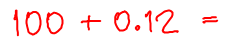 100 + 0.12 =